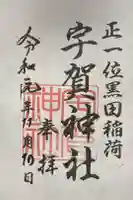 正一位黒田稲荷
宇賀神社
奉拝
令和元年11月10日